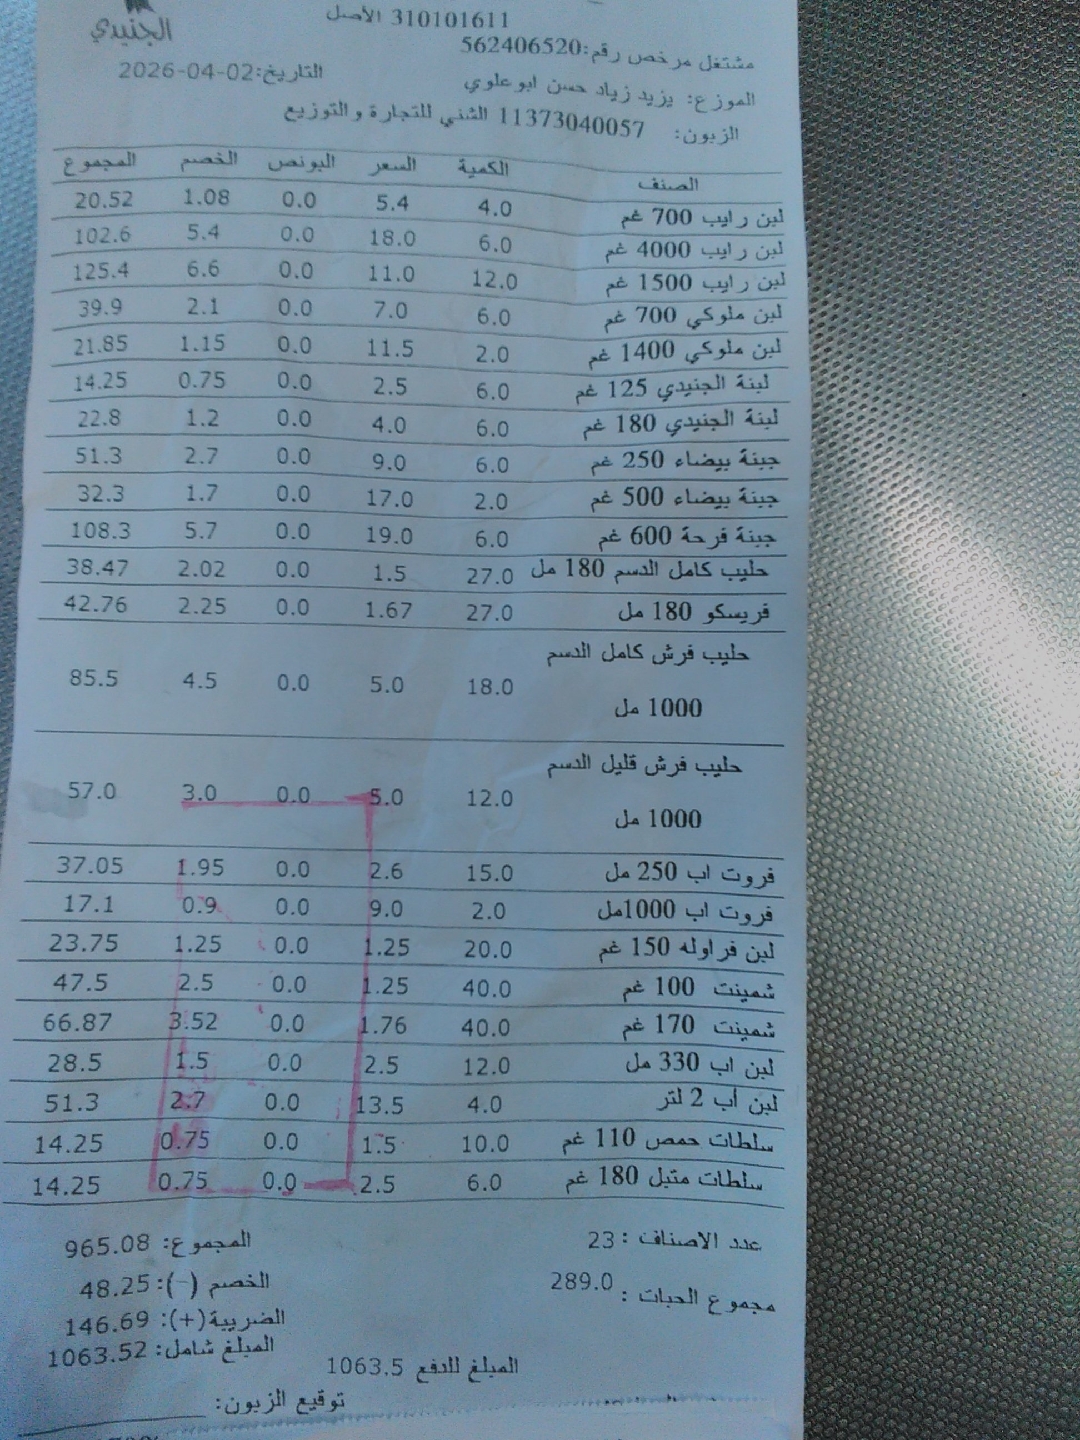 الجنيدي
310101611 الأصل
مشتغل مرخص رقم:562406520
التاريخ:2026-04-02
الموزع: يزيد زياد حسن ابوعلوي
الزبون: 11373040057 الشني للتجارة والتوزيع
الصنف الكمية السعر البونص الخصم المجموع
لبن رايب 700 غم 4.0 5.4 0.0 1.08 20.52
لبن رايب 4000 غم 6.0 18.0 0.0 5.4 102.6
لبن رايب 1500 غم 12.0 11.0 0.0 6.6 125.4
لبن ملوكي 700 غم 6.0 7.0 0.0 2.1 39.9
لبن ملوكي 1400 غم 2.0 11.5 0.0 1.15 21.85
لبنة الجنيدي 125 غم 6.0 2.5 0.0 0.75 14.25
لبنة الجنيدي 180 غم 6.0 4.0 0.0 1.2 22.8
جبنة بيضاء 250 غم 6.0 9.0 0.0 2.7 51.3
جبنة بيضاء 500 غم 2.0 17.0 0.0 1.7 32.3
جبنة فرحة 600 غم 6.0 19.0 0.0 5.7 108.3
حليب كامل الدسم 180 مل 27.0 1.5 0.0 2.02 38.47
فريسكو 180 مل 27.0 1.67 0.0 2.25 42.76
حليب فرش كامل الدسم
1000 مل 18.0 5.0 0.0 4.5 85.5
حليب فرش قليل الدسم
1000 مل 12.0 5.0 0.0 3.0 57.0
فروت اب 250 مل 15.0 2.6 0.0 1.95 37.05
فروت اب 1000مل 2.0 9.0 0.0 0.9 17.1
لبن فراوله 150 غم 20.0 1.25 0.0 1.25 23.75
شمينت 100 غم 40.0 1.25 0.0 2.5 47.5
شمينت 170 غم 40.0 1.76 0.0 3.52 66.87
لبن اب 330 مل 12.0 2.5 0.0 1.5 28.5
لبن أب 2 لتر 4.0 13.5 0.0 2.7 51.3
سلطات حمص 110 غم 10.0 1.5 0.0 0.75 14.25
سلطات متبل 180 غم 6.0 2.5 0.0 0.75 14.25
عدد الاصناف : 23 المجموع: 965.08
مجموع الحبات : 289.0 الخصم (-): 48.25
الضريبة(+): 146.69
المبلغ شامل: 1063.52
المبلغ للدفع 1063.5
توقيع الزبون: